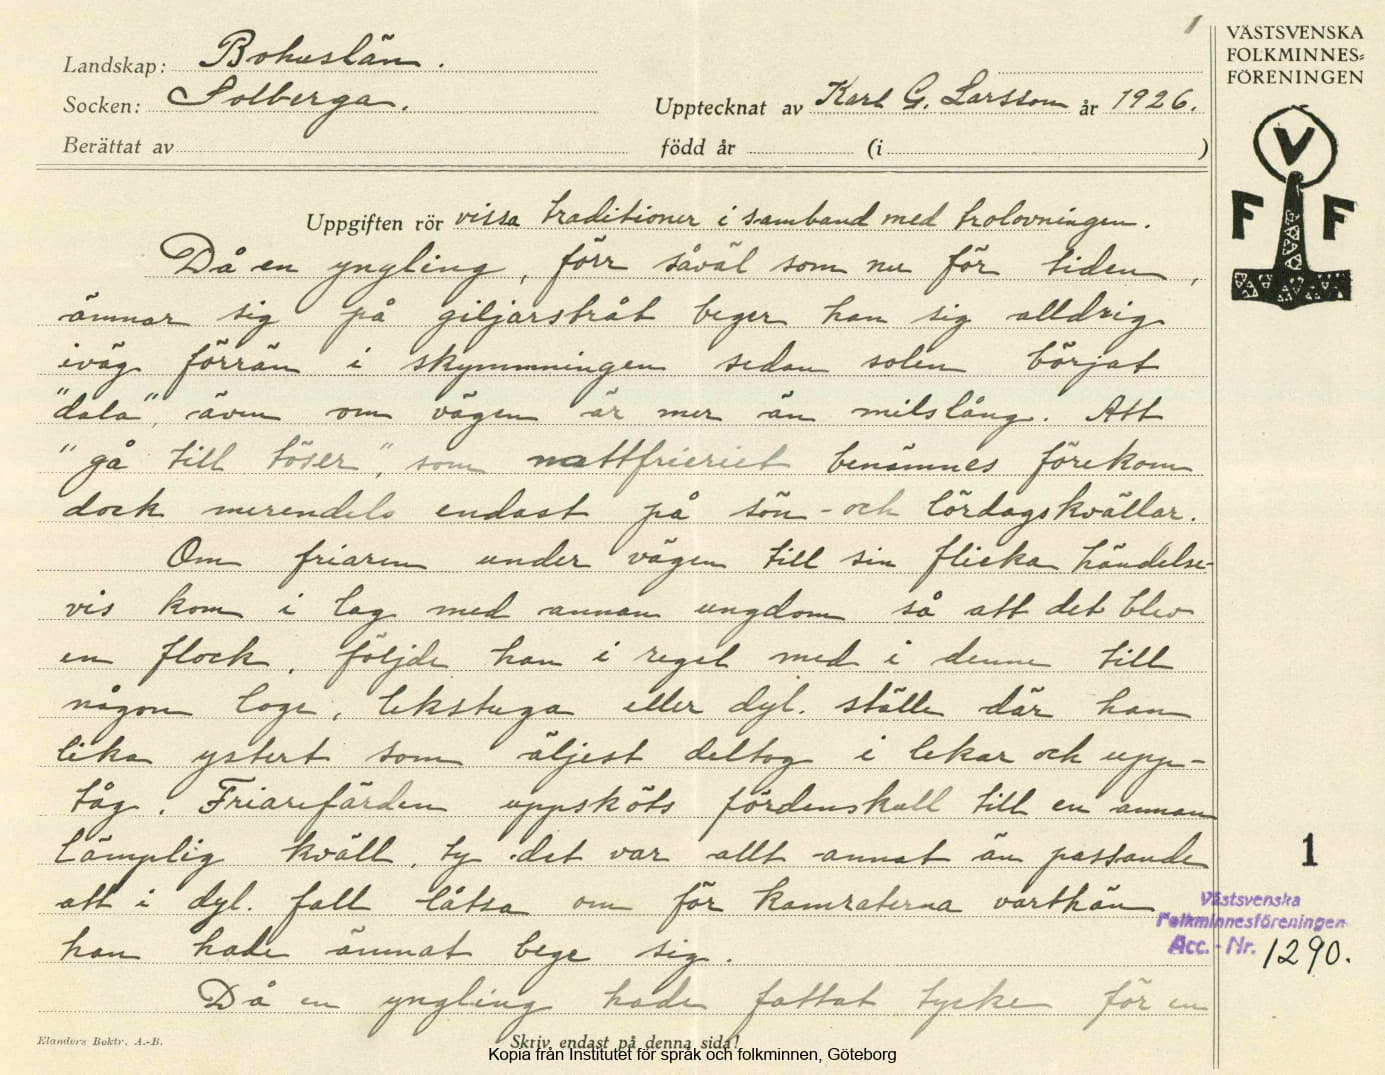 1
VÄSTSVENSKA
FOLKMINNES=
FÖRENINGEN
V
F F
Landskap: Bohuslän.
Socken: Solberga.
Upptecknat av Karl G. Larsson år 1926.
Berättat av
född år (i )
Uppgiften rör vissa traditioner i samband med trolovningen.
Då en yngling, förr såväl som nu för tiden,
ämnar sig på giljarstråt beger han sig alldrig
iväg förrän i skymmningen sedan solen börjat
"dala", även om vägen är mer än milslång. Att
"gå till töser", som nattfrieriet benämnes förekom
dock merendels endast på sön- och lördagskvällar.
Om friaren under vägen till sin flicka händelse-
vis kom i lag med annan ungdom så att det blev
en flock, följde han i regel med i denne till
någon loge, lekstuga eller dyl. ställe där han
lika ystert som äljest deltog i lekar och upp-
tåg. Friarefärden uppsköts fördenskull till en annan
lämplig kväll, ty det var allt annat än passande
att i dyl. fall låtsa om för kamraterna varthän
han hade ämnat bege sig.
Då en yngling hade fattat tycke för en
1
Västsvenska
Folkminnesföreningen
Acc. - Nr. 1290.
Elanders Boktr. A.-B.
Skriv endast på denna sida!
Kopia från Institutet för språk och folkminnen, Göteborg